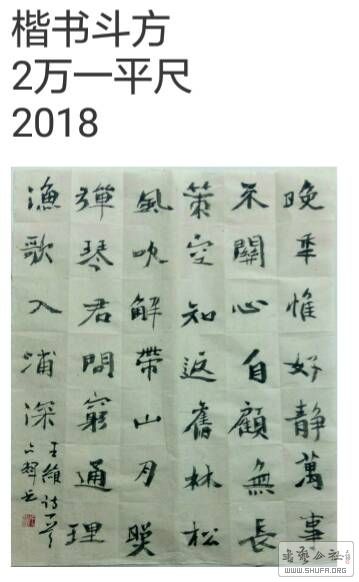 楷书斗方
2万一平尺
2018
晚年惟好靜萬事
不關心自顧無長
策空知返舊林松
風吹解帶山月
彈琴君問窮通理
漁歌入浦深
王維詩一首
書法公社
WWW.SHUFA.ORG